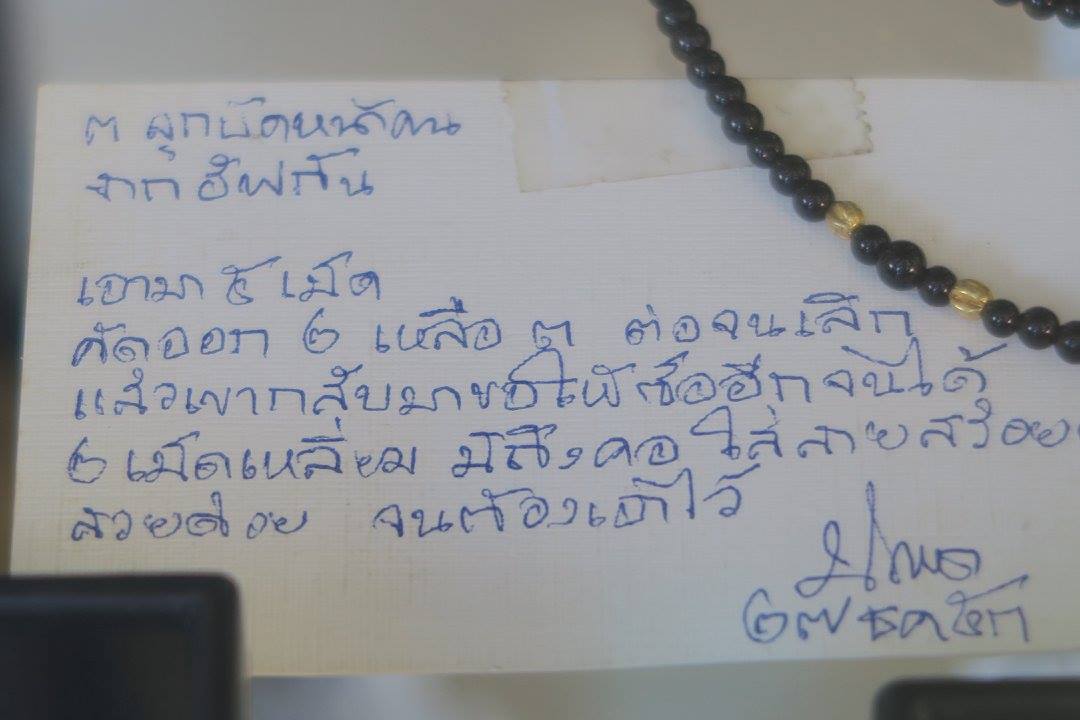 ๓ ลูกปัดหน้าคน
จาก อัฟกัน
เอามา ๕ เม็ด
คัดออก ๒ เหลือ ๓ ต่อจนเลิก
แล้วเขากลับมาขอให้ซื้ออีกจนได้
๒ เม็ดเหลี่ยม มีถึงคอ ใส่สายสร้อย
สวยด้วย จนต้องเอาไว้
๒๗